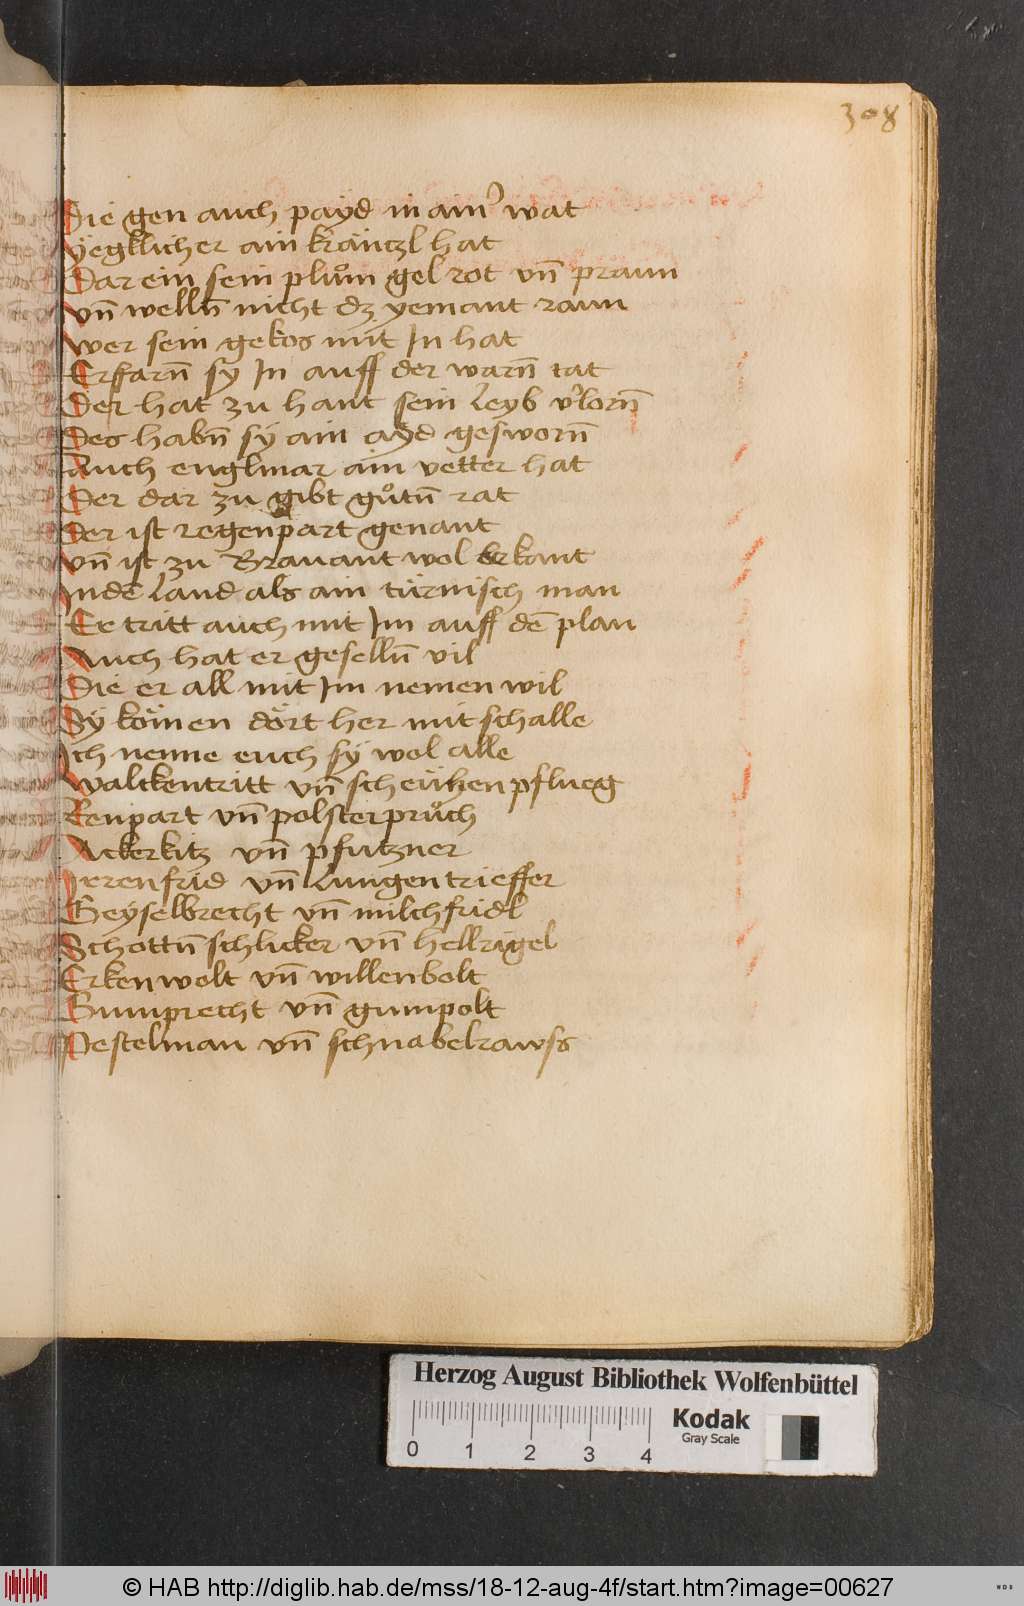 308
Die gen auch payd in ain' wat
yegklicher ain kräntzl hat
Dar ein sein plům gel rot vn̄ praun
vn̄ welln̄ nicht dz yemant raun
wer sein gekos mit In hat
Erffarn̄ sy In auff der warn̄ tat
Der hat zu hant sein Leyb v'lorn̄
Des habn̄ sy ain ayd gesworn̄
Auch englmar ain vetter hat
Der dar zu gibt gůtn̄ rat
der ist regenpart genant
vn̄ ist zu Brauant wol erkant
In dē Land als ain türnisch man
Er tritt auch mit Im auff dē plan
Auch hat er geselln̄ vil
Die er all mit Im nemen wil
Sy kömen dört her mit schalle
Ich nenne euch sy wol alle
walckentritt vn̄ scheühenpflueg
Renpart vn̄ polsterprůch
Ackerkitz vn̄ pfutzner
Irrenfrid vn̄ Lungentrieffer
Geyselbrecht vn̄ milchfridl
Schottn̄ schlicker vn̄ hellrigel
Erkenwolt vn̄ willenbolt
Gumprecht vn̄ gumpolt
Pestelman vn̄ schnabelrawss
Herzog August Bibliothek Wolfenbüttel
0 1 2 3 4
Kodak
Gray Scale
© HAB http://diglib.hab.de/mss/18-12-aug-4f/start.htm?image=00627